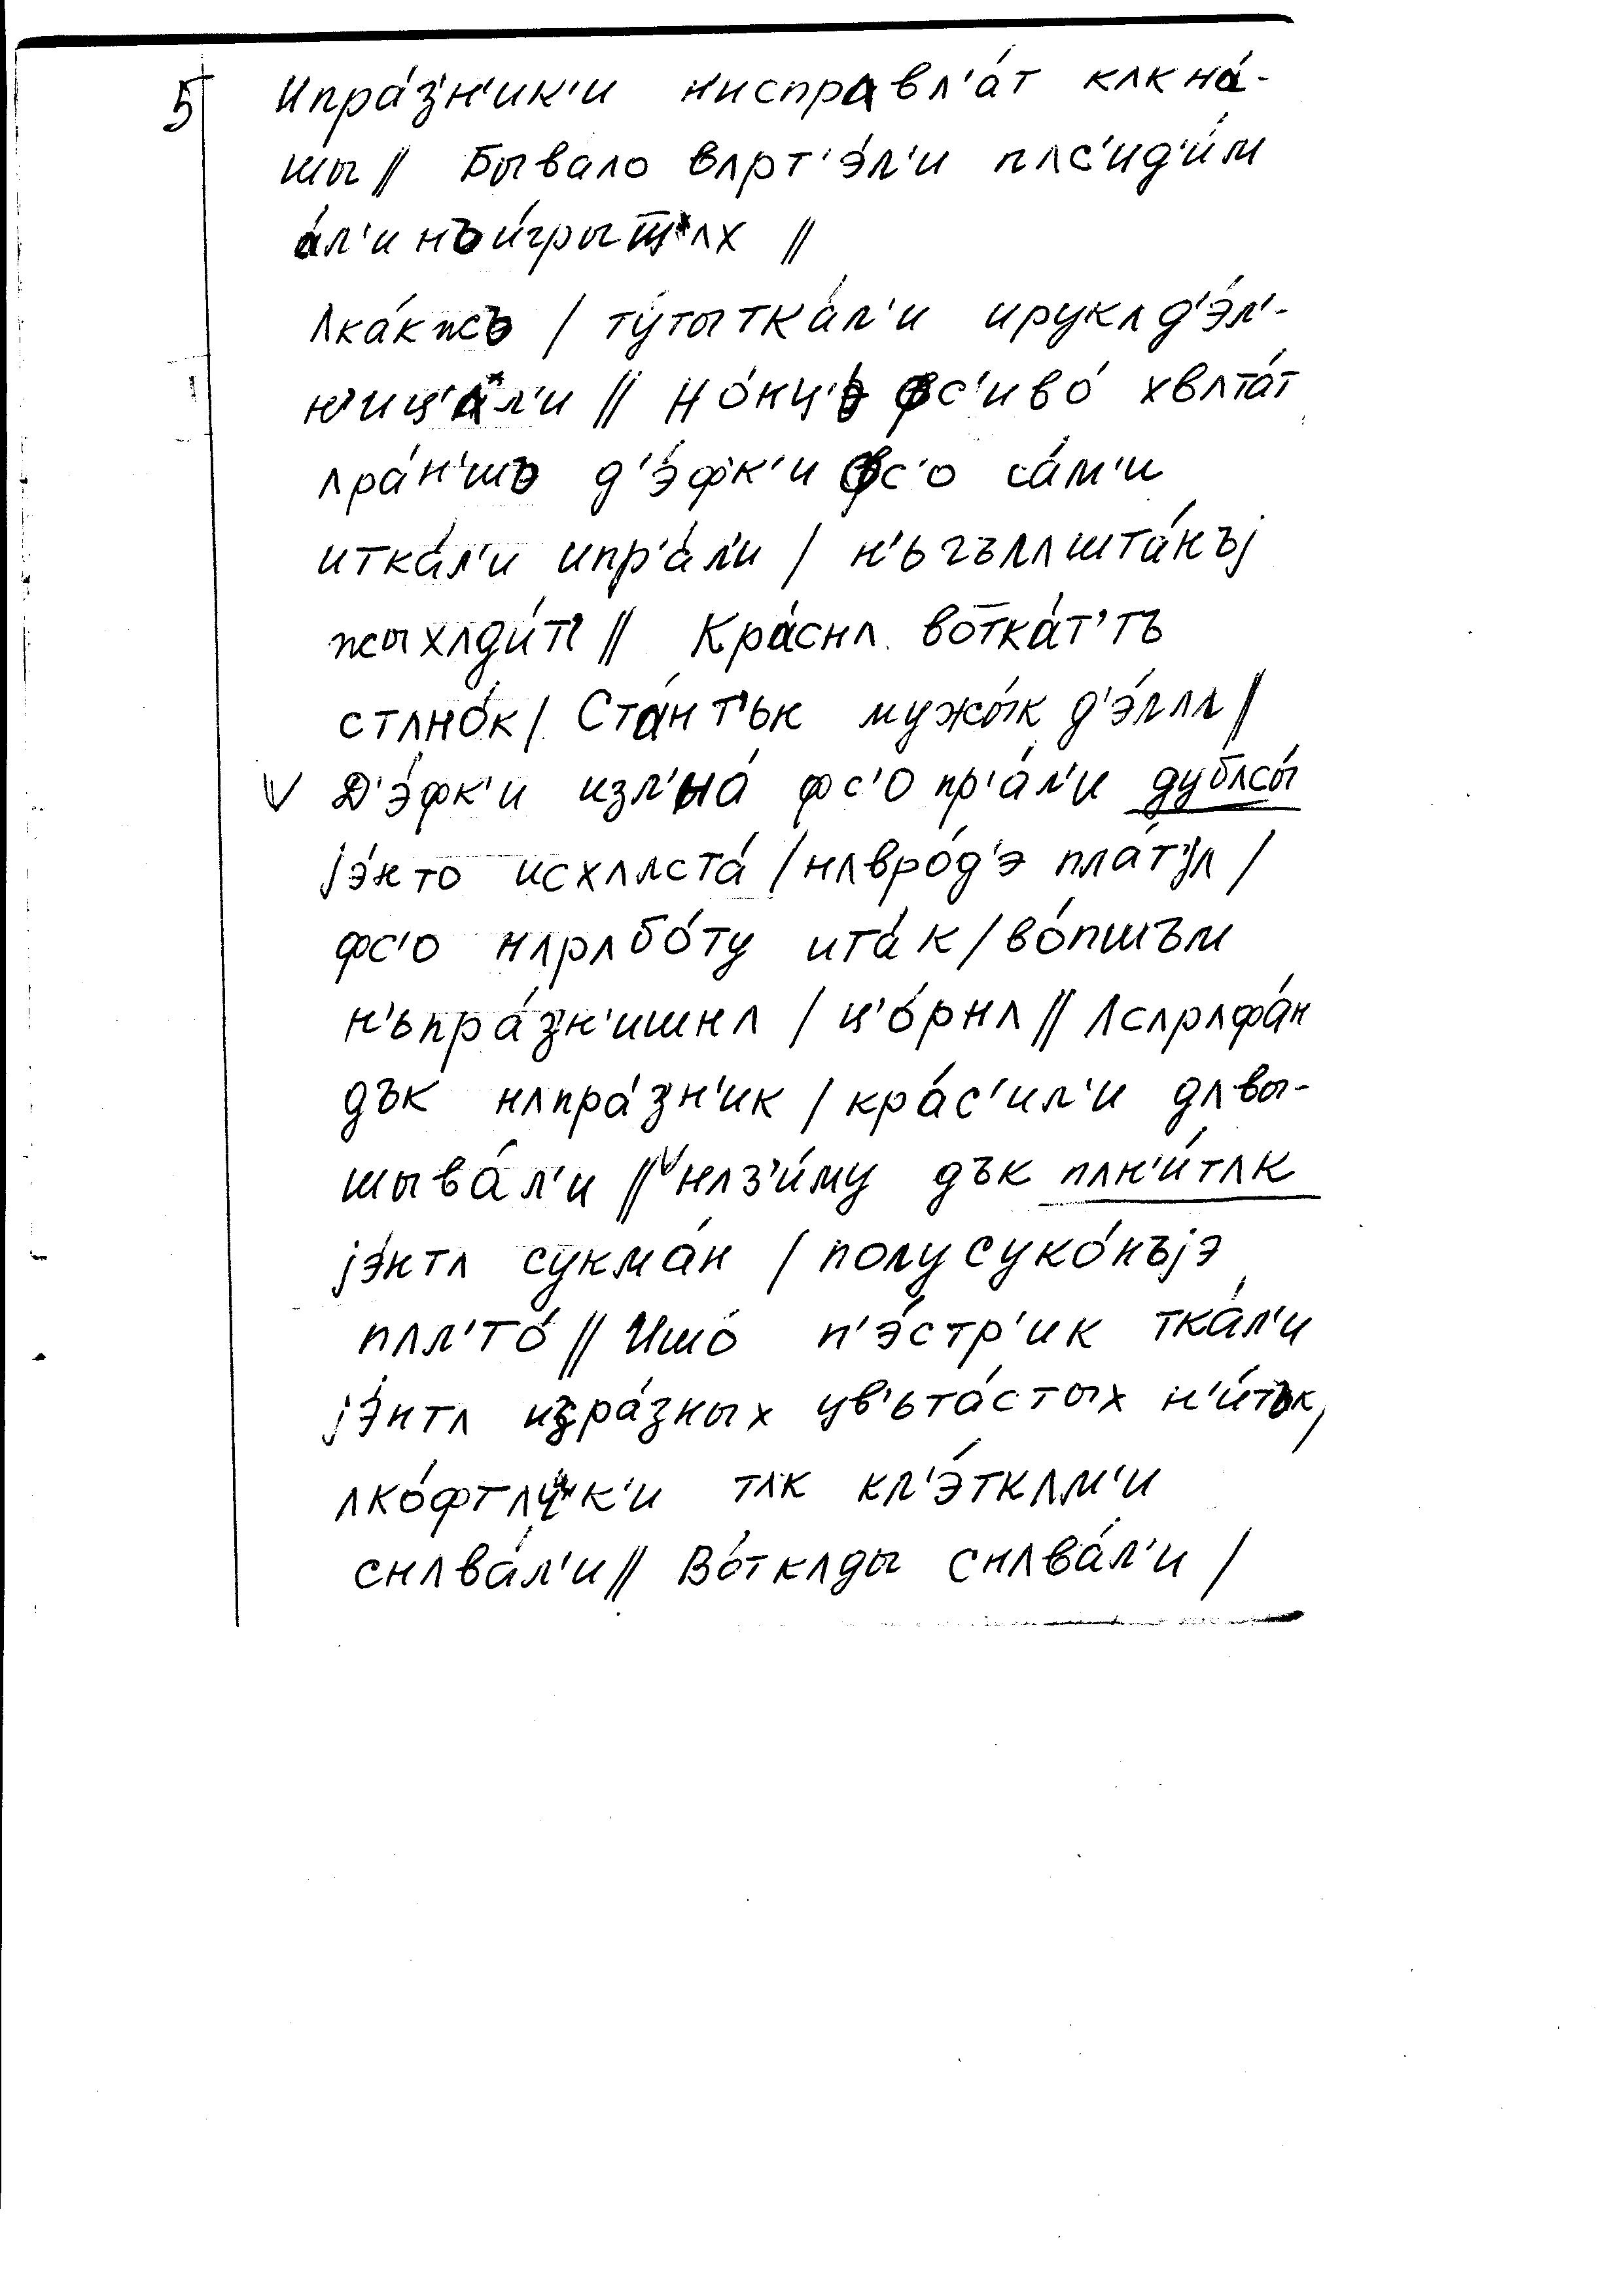 5 Ипра́з'н'ик'и н'исправл'а́т кʌкна́-
шы // Бывало вʌрт'э́л'и пʌс'ид'и́м
а́л'и нъи́грыш'ʌх //
Ʌка́кжъ / ту́тытка́л'и ирукʌд'э́л'-
н'иц'ал'и // Но́нц'ъ фс'иво́ хвʌта́т
ʌра́н'шъ д'э́фк'и фс'о са́м'и
итка́л'и ипр'а́л'и / н'ьгълʌшта́нъј
жыхʌди́т' // Кра́снʌ вотка́т'тъ
стʌно́к / Ста́нт'ък мужы́к д'э́лʌл //
V Д'э́фк'и изл'на́ фс'о пр'а́л'и дубʌсы́
јэ́нто исхʌлста́ / нʌвро́д'э пла́т'јʌ /
фс'о нʌрʌбо́ту ита́к / во́пшъм
н'ьпра́з'н'ишнʌ / ц'о́рнʌ // Ʌсʌрʌфа́н
дък нʌпра́з'н'ик / кра́с'ил'и дʌвы-
шыва́л'и // V нʌз'и́му дък пʌн'и́тʌк
јэ́нтʌ сукма́н / полусуко́нъјэ
пʌл'то́ // Ишо́ п'э́стр'ик тка́л'и
јэ́нтʌ изра́зных цв'ьта́стых н'и́тък,
ʌко́фтʌчк'и тʌк кл'э́ткʌм'и
снʌва́л'и // Во́ткʌды снʌва́л'и /